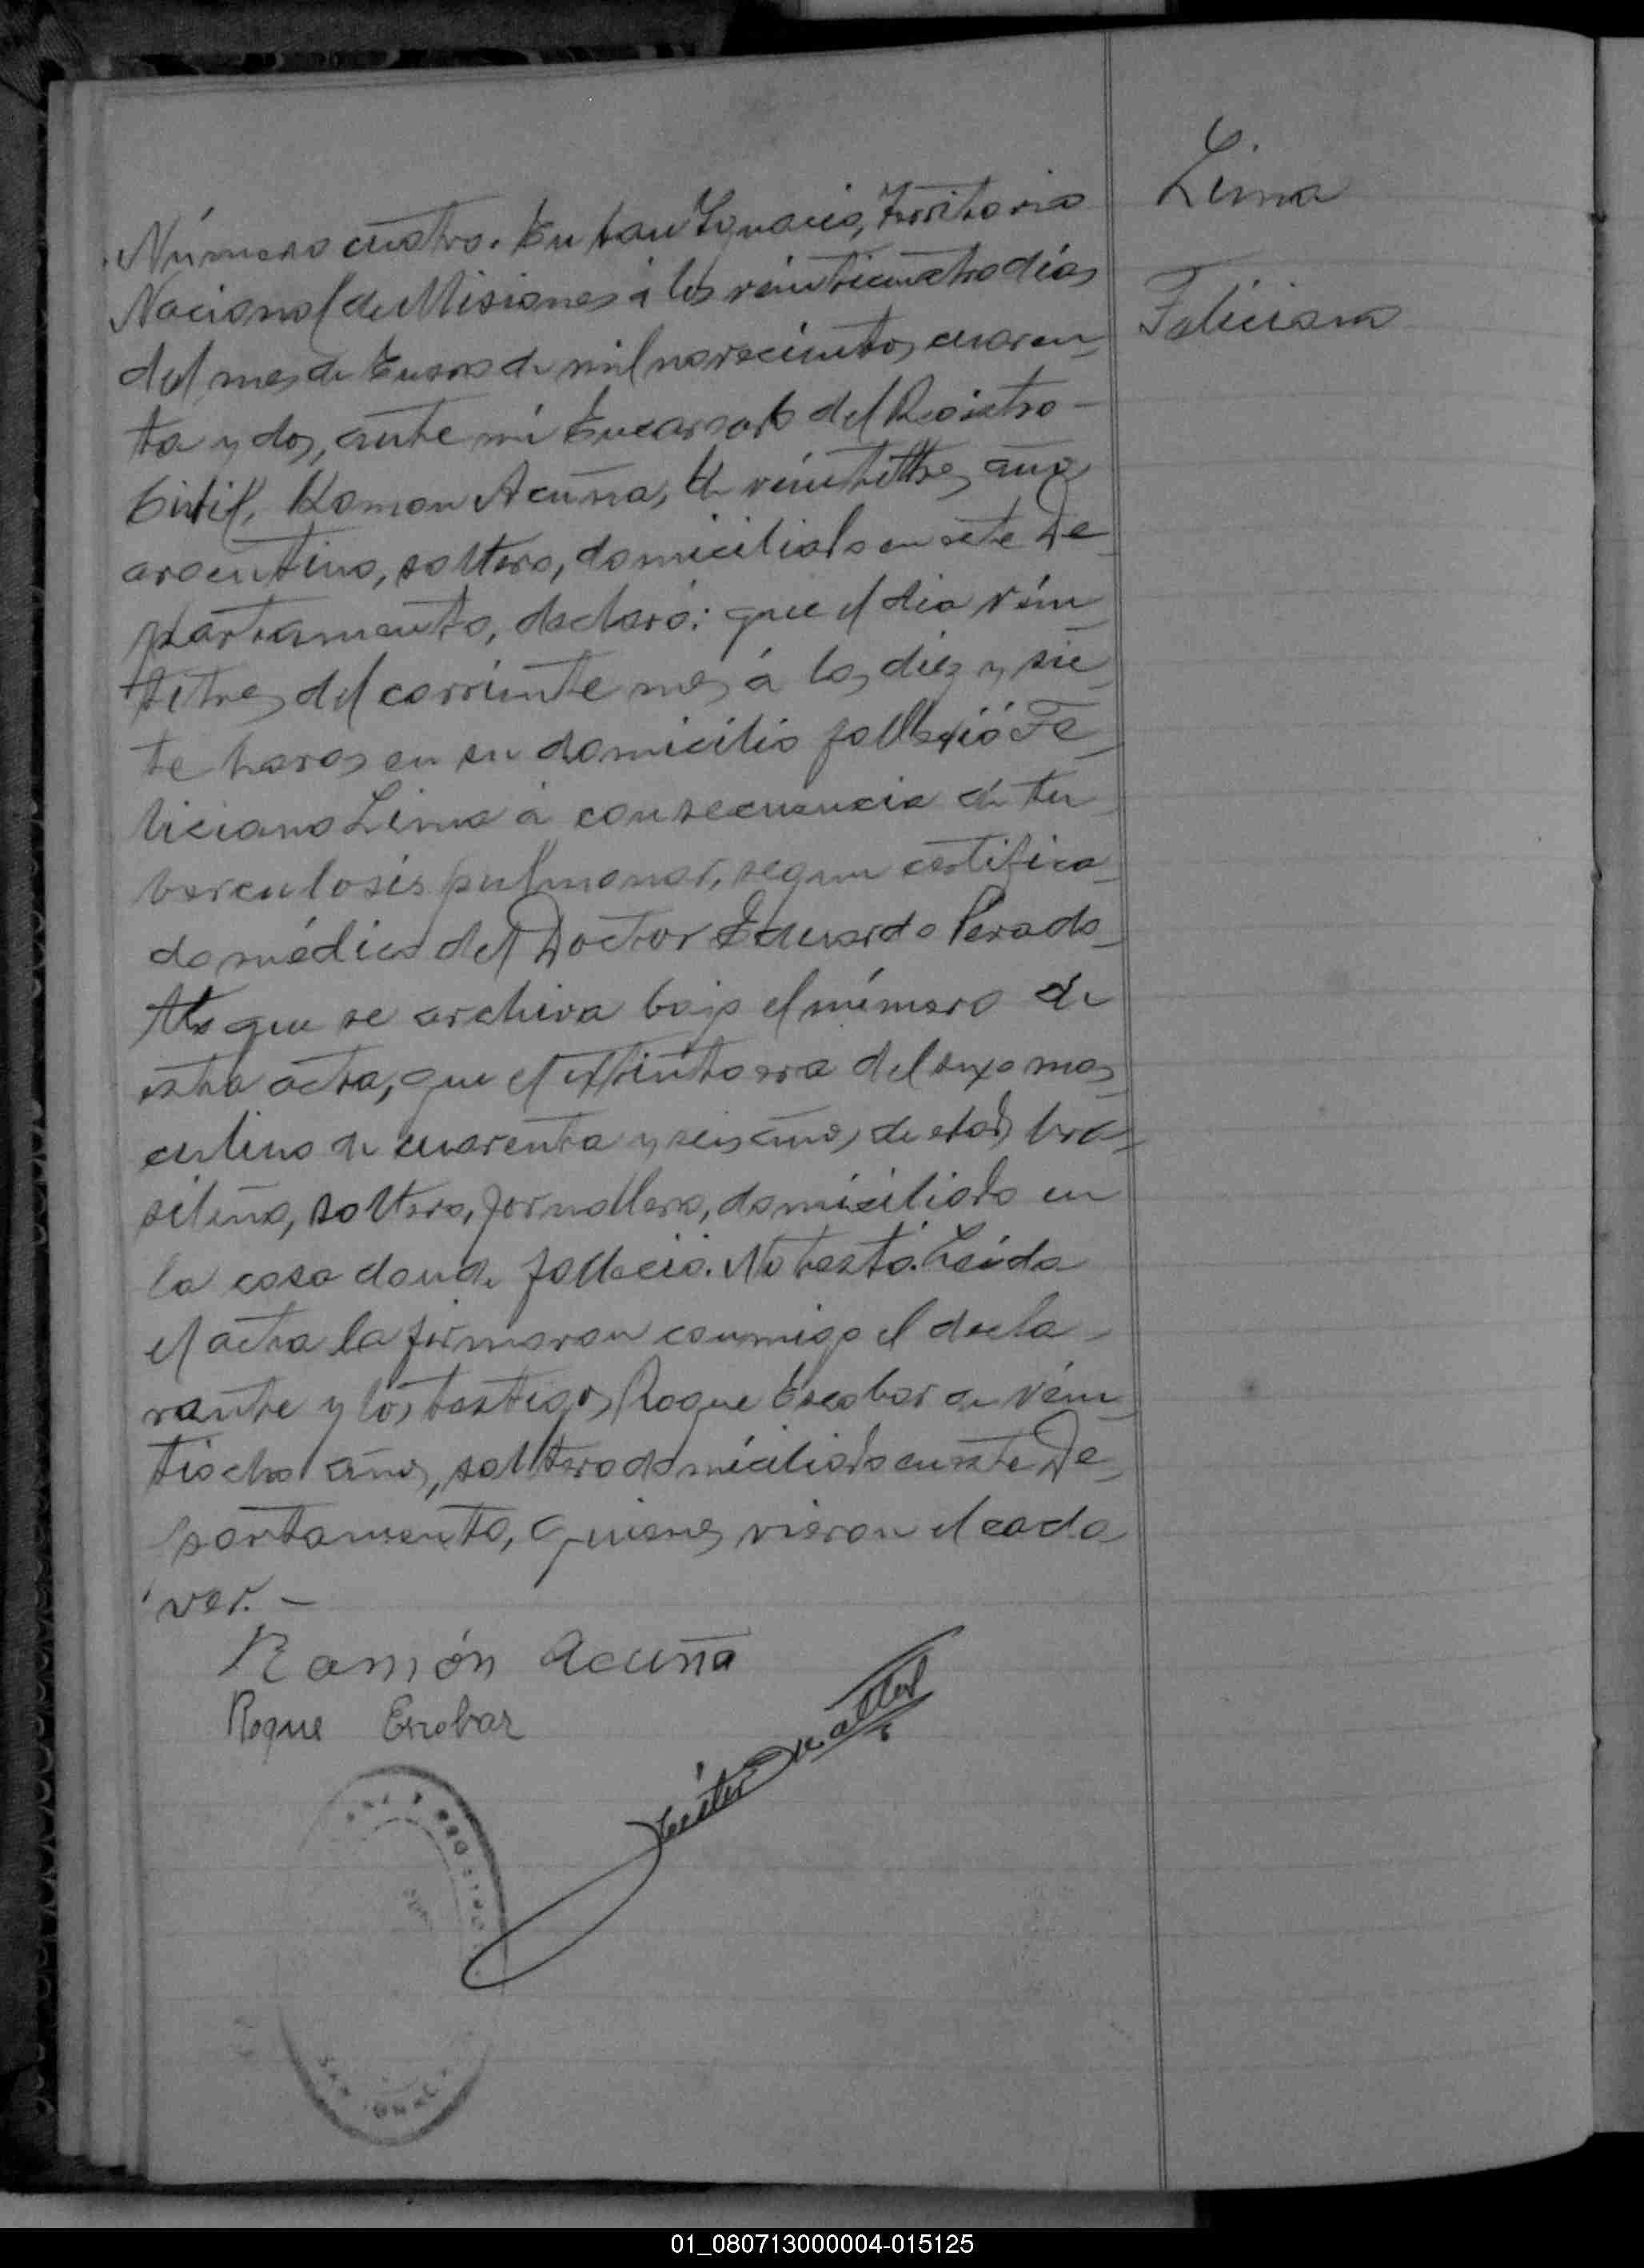 Número cuatro. En San Ignacio, Territorio
Nacional de Misiones á los veinticuatro días
del mes de Enero de mil novecientos cuaren-
ta y dos, ante mí Encargado del Registro-
Civil, Ramon Acuña, de veintitres años
argentino, soltero, domiciliado en este De-
partamento, declaró: que el dia vein-
titres del corriente mes á las diez y sie-
te horas en su domicilio falleció Fe-
liciano Lima á consecuencia de tu-
berculosis pulmonar, segun certifica-
do médico del Doctor Eduardo
que se archiva bajo el número de
esta acta, que el extinto era del sexo mas-
culino de cuarenta y seis años de edad, bra-
sileño, soltero, jornallero, domiciliado en
la casa donde falleció. No testó. Leida
el acta la firmaron conmigo el decla-
rante y los testigos Roque Escobar de vein-
tiocho años, soltero domiciliado en este De-
partamento, quienes vieron el cada
ver. -
Ramón Acuña
Roque Escobar
Lima
Feliciano
01_080713000004-015125